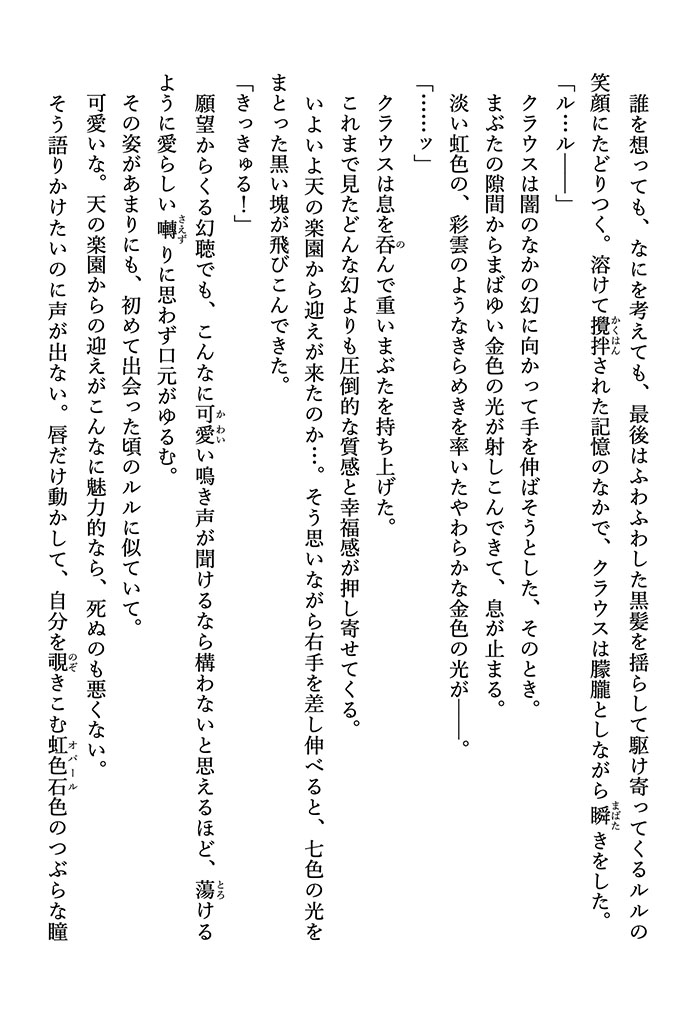 誰を想っても、なにを考えても、最後はふわふわした黒髪を揺らして駆け寄ってくるルルの
笑顔にたどりつく。溶けて攪拌された記憶のなかで、クラウスは朦朧としながら瞬きをした。
「ル…ル――」
クラウスは闇のなかの幻に向かって手を伸ばそうとした、そのとき。
まぶたの隙間からまばゆい金色の光が射しこんできて、息が止まる。
淡い虹色の、彩雲のようなきらめきを率いたやわらかな金色の光が――。
「……ッ」
クラウスは息を呑んで重いまぶたを持ち上げた。
これまで見たどんな幻よりも圧倒的な質感と幸福感が押し寄せてくる。
いよいよ天の楽園から迎えが来たのか…。そう思いながら右手を差し伸べると、七色の光を
まとった黒い塊が飛びこんできた。
「きっきゅる！」
願望からくる幻聴でも、こんなに可愛い鳴き声が聞けるなら構わないと思えるほど、蕩ける
ように愛らしい囀りに思わず口元がゆるむ。
その姿があまりにも、初めて出会った頃のルルに似ていて。
可愛いな。天の楽園からの迎えがこんなに魅力的なら、死ぬのも悪くない。
そう語りかけたいのに声が出ない。唇だけ動かして、自分を覗きこむ虹色石色のつぶらな瞳